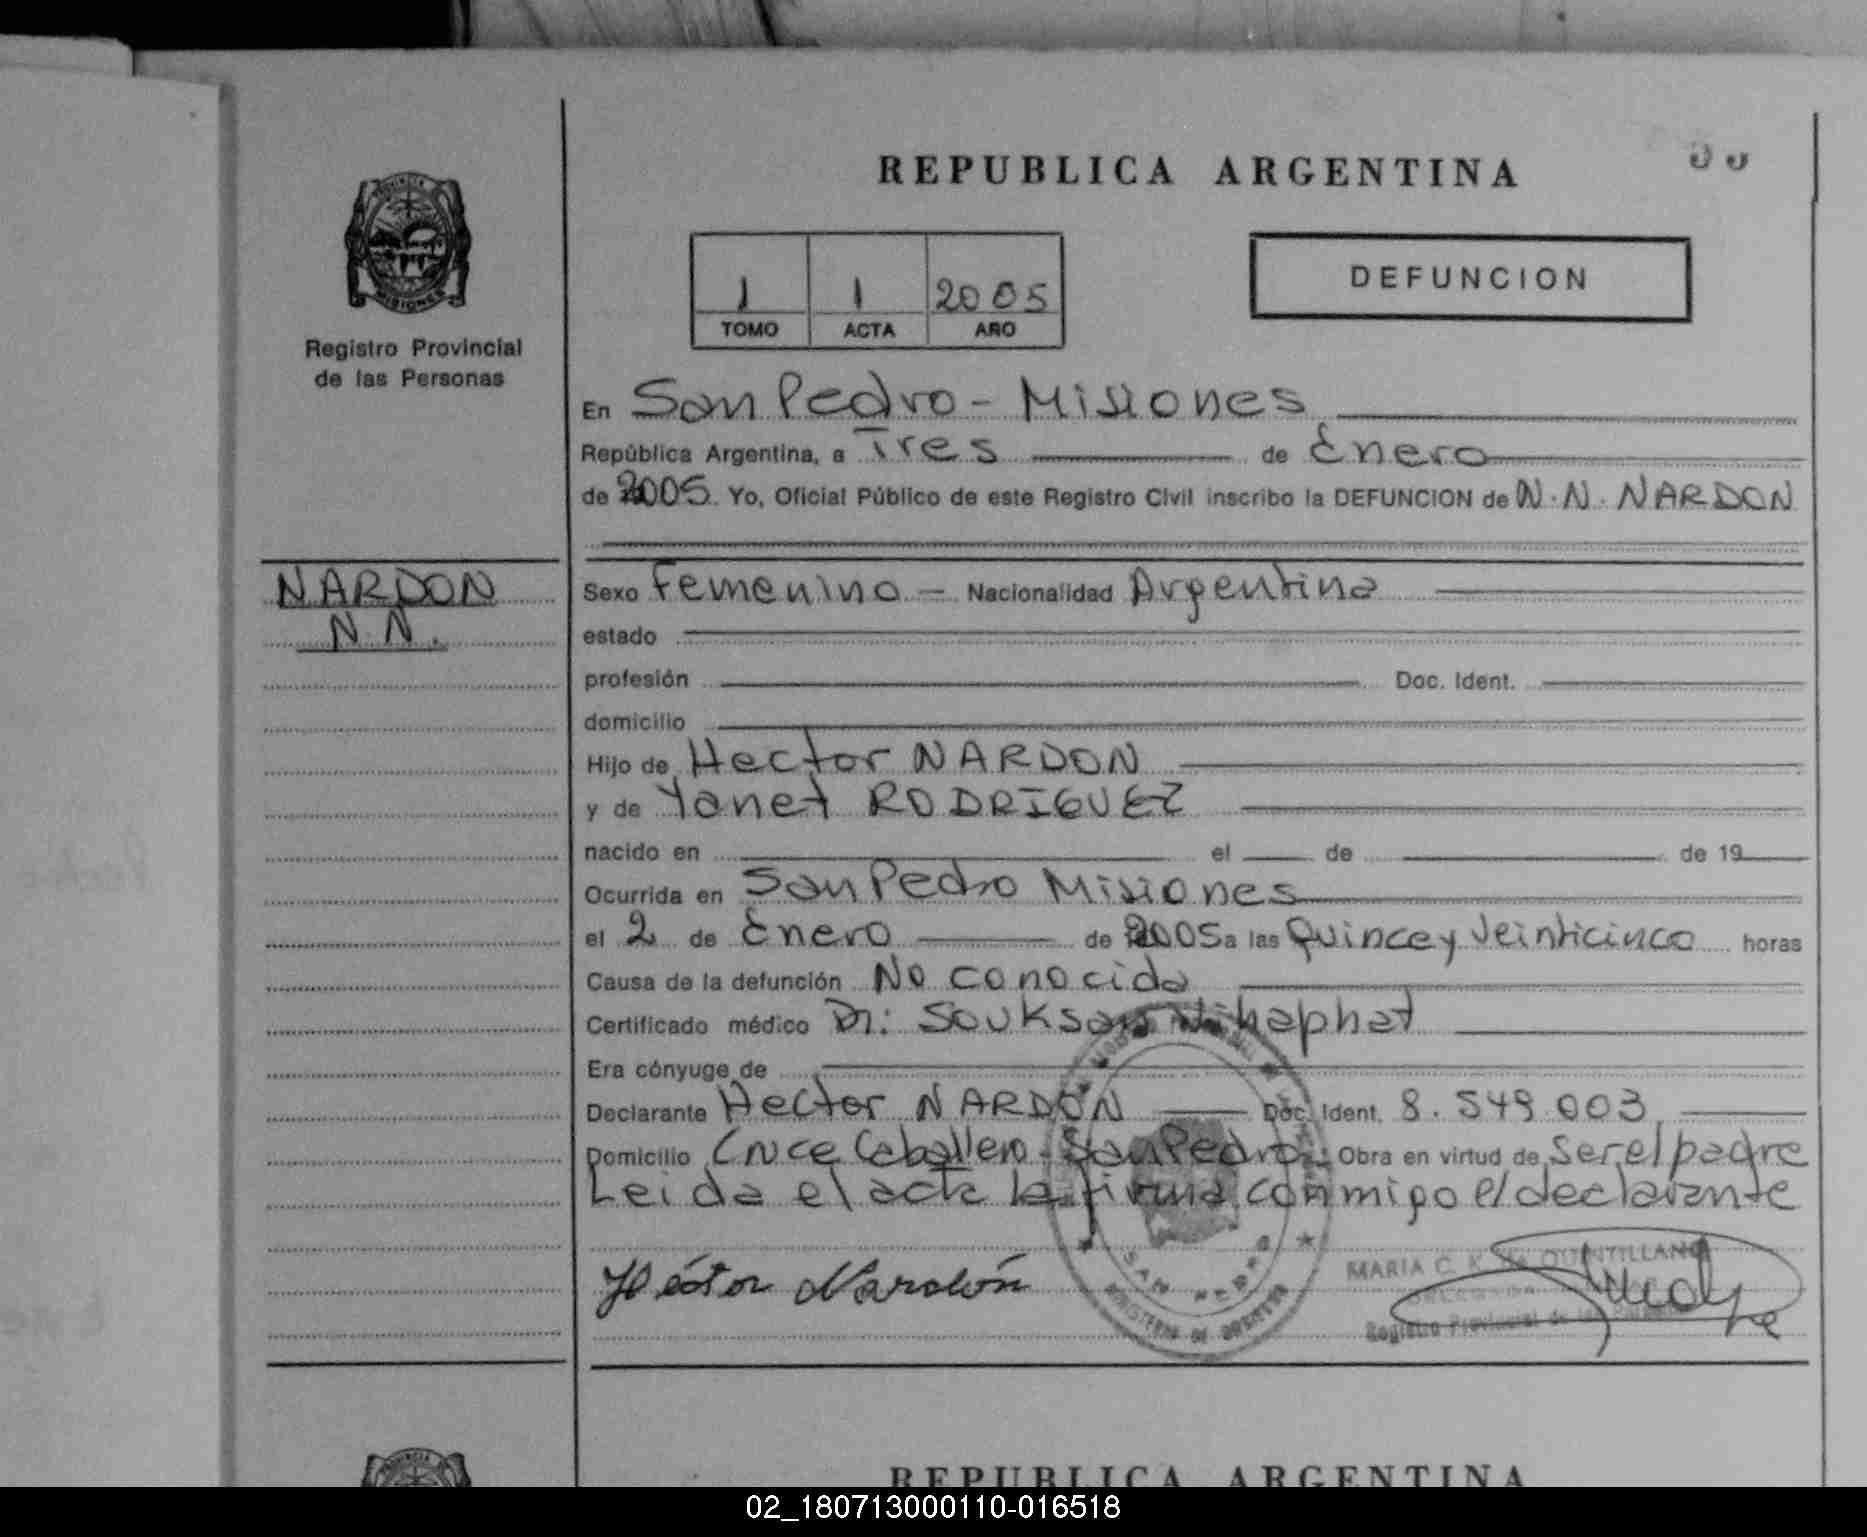 REPUBLICA ARGENTINA
PROVINCIA
MISIONES
Registro Provincial
de las Personas
1 1 2005
TOMO ACTA AÑO
DEFUNCION
En San Pedro - Misiones
República Argentina, a Tres de Enero
de 2005. Yo, Oficial Público de este Registro Civil inscribo la DEFUNCION de N.N. NARDON
NARDON
N.N.
Sexo Femenino - Nacionalidad Argentina
estado
profesión Doc. Ident.
domicilio
Hijo de Hector NARDON
y de Yanet RODRIGUEZ
nacido en el de de 19
Ocurrida en San Pedro Misiones
el 2 de Enero de 2005 a las Quince y Veinticinco horas
Causa de la defunción No conocida
Certificado médico Dr: Souksan
Era cónyuge de
Declarante Hector NARDON Doc. Ident. 8.549.003
Domicilio Cruce Caballero - San Pedro. Obra en virtud de ser el padre
Leida el acta la firma conmigo el declarante
Héctor Nardón
SAN PEDRO
MINISTERIO DE GOBIERNO
MARIA C. K. de QUINTILLAN
Registro Provincial de las
REPUBLICA ARGENTINA
02_180713000110-016518